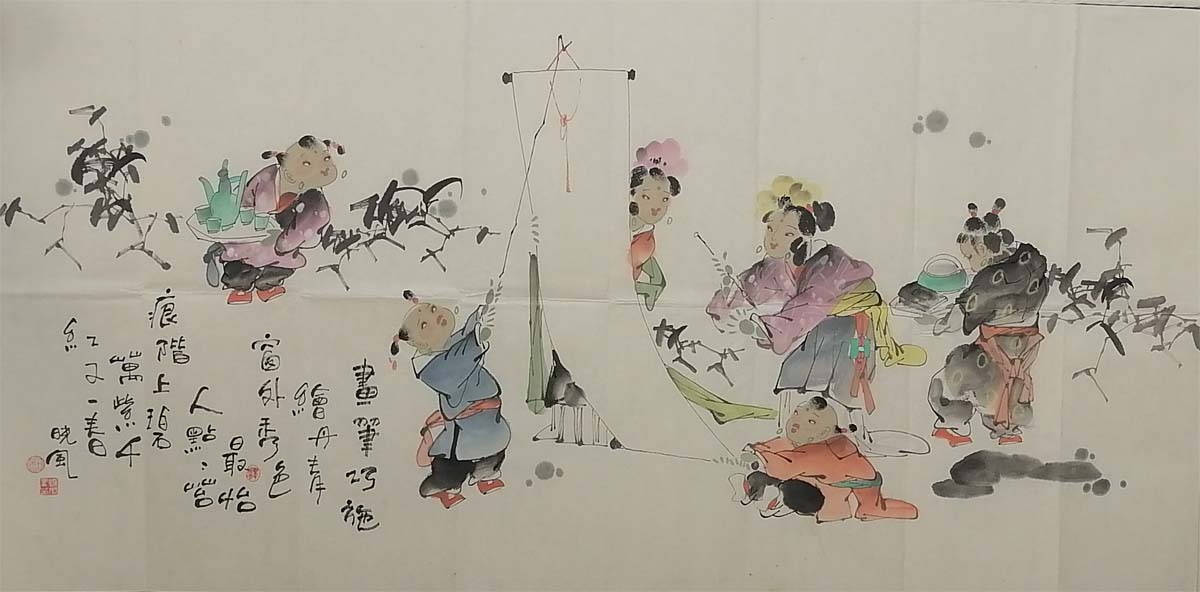 畫筆巧施
繪丹青
窗外秀色
最怡
人點點苔
痕階上碧
萬紫千
紅又一春
曉風